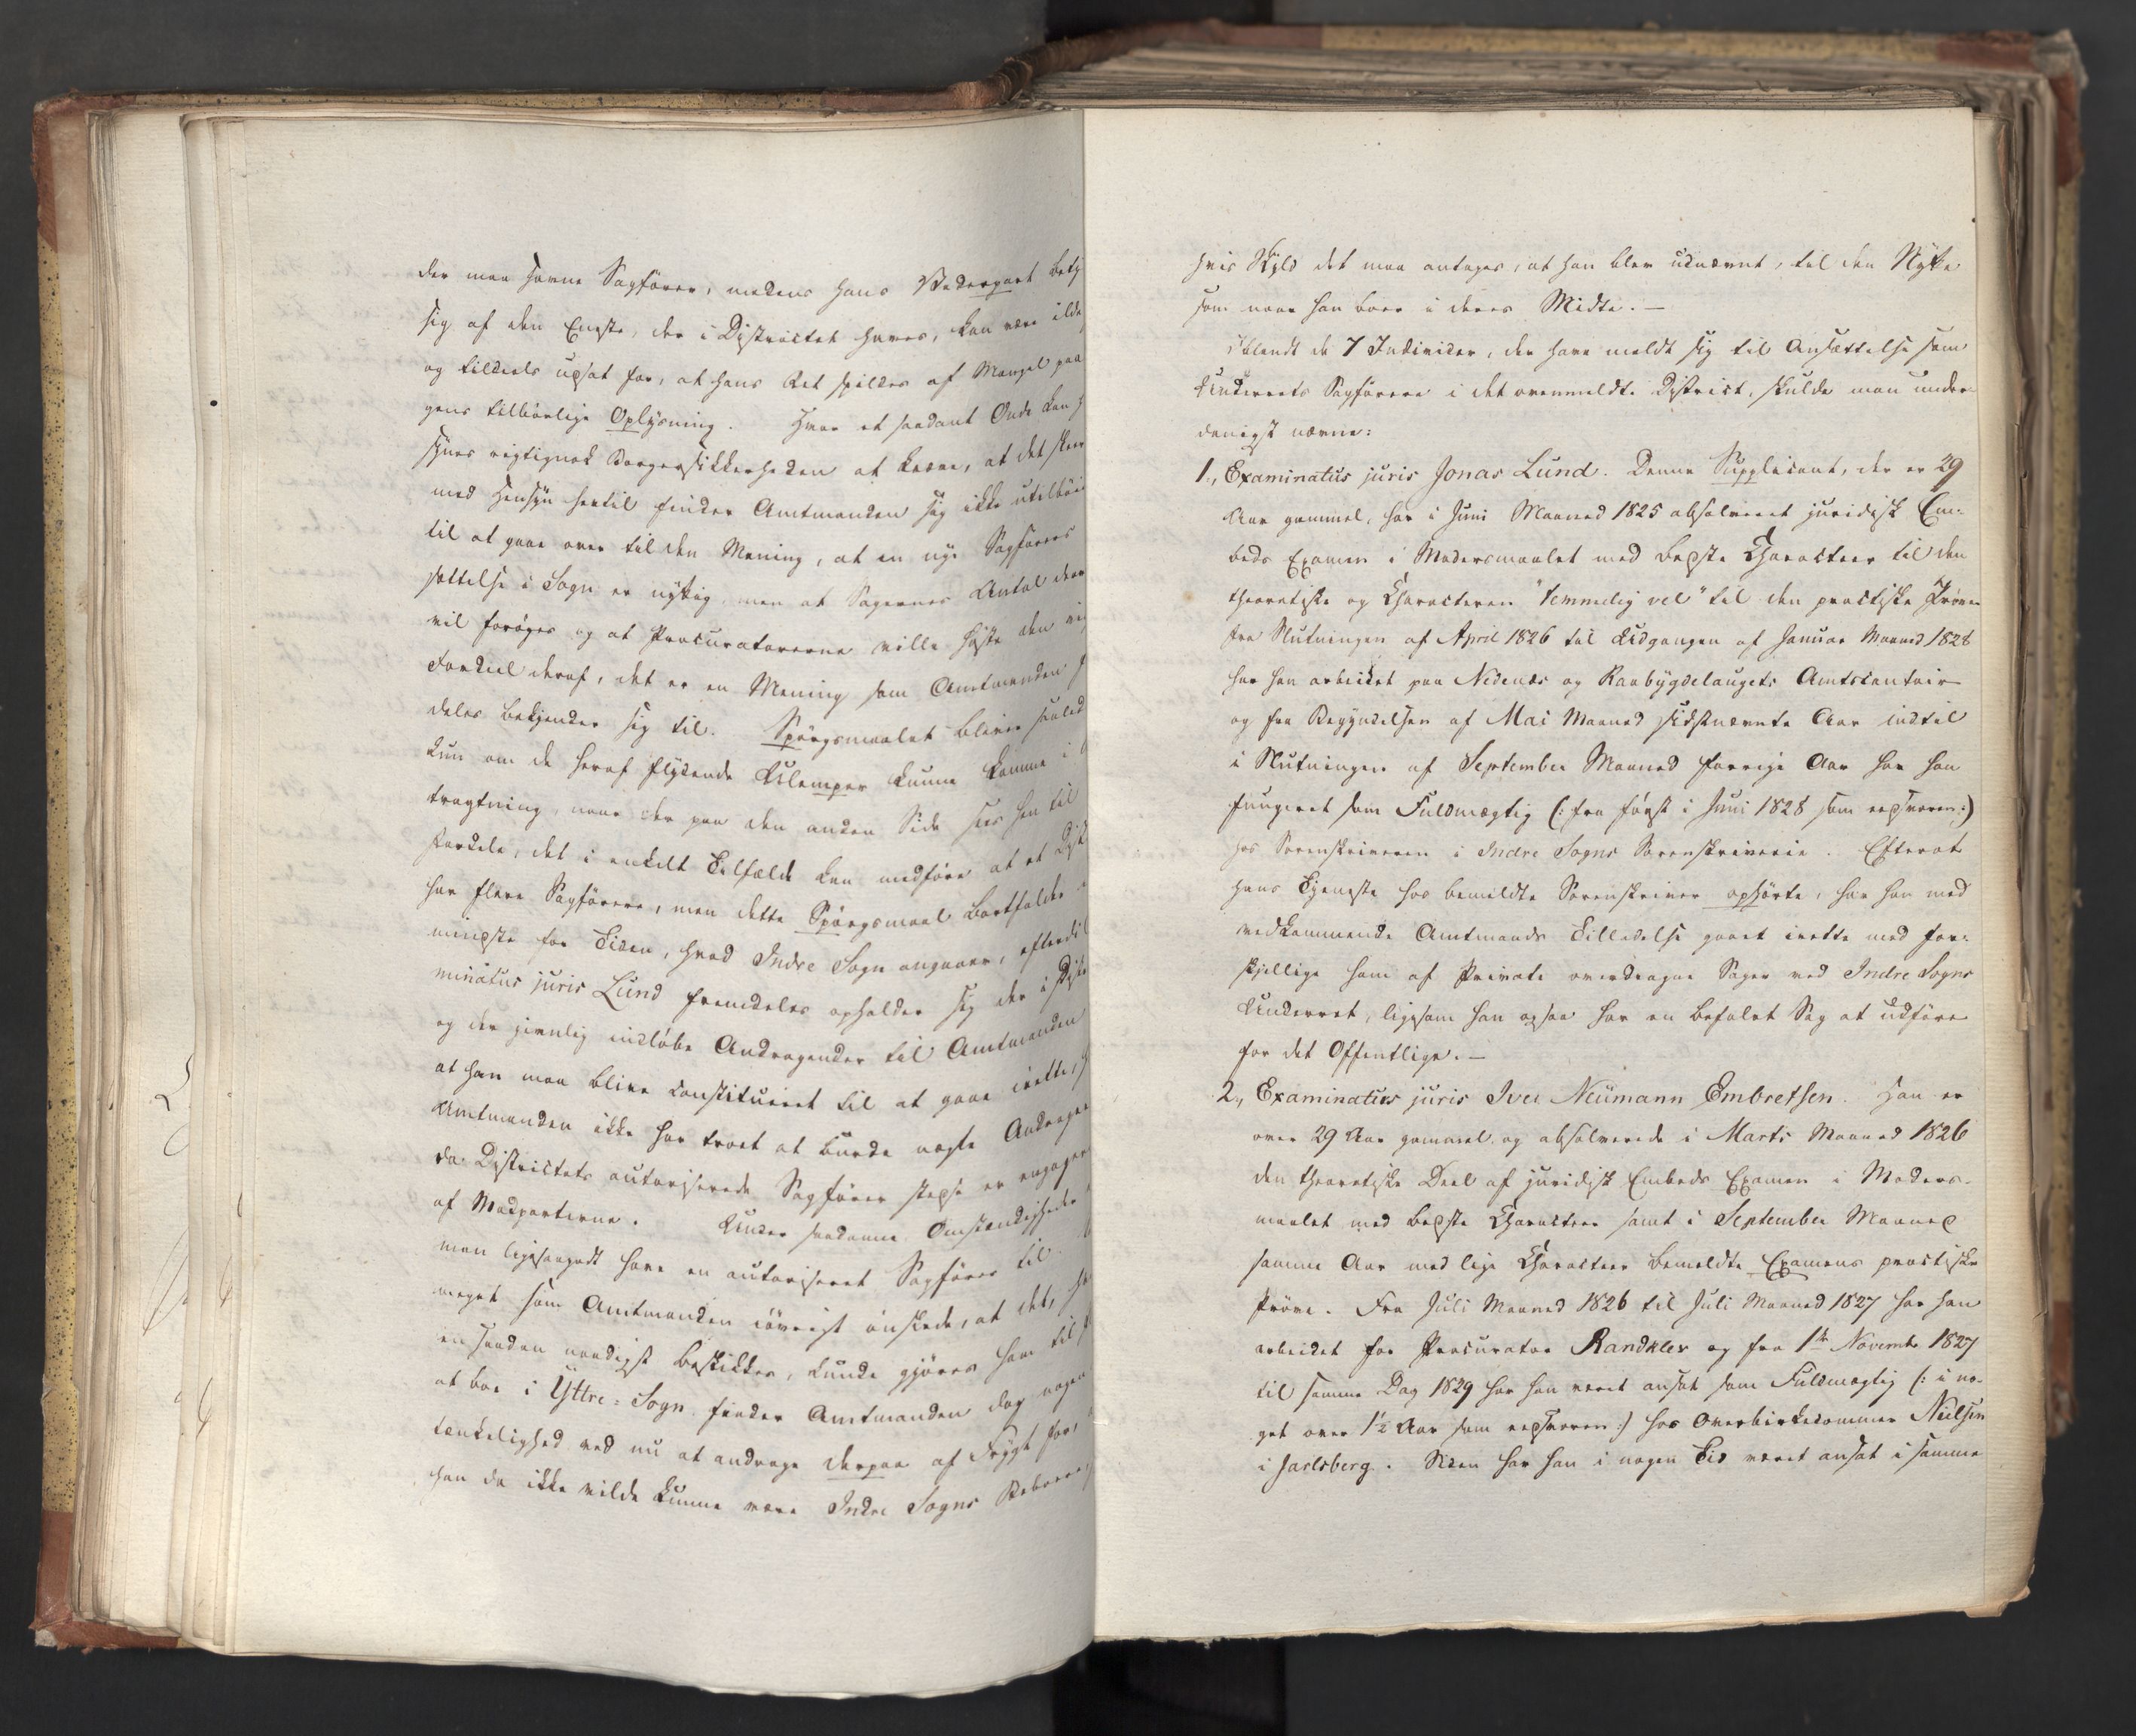 der maa savne Sagfører, medens hans Vederpart betj
sig af den Eneste, der i Districtet haves, kan være ilde
og tildeels udsat for, at hans Ret spildes af Mangel paa
gens tilbørlige Oplysning. Hvor et saadant Onde kan
synes rigtignok Borgersikkerheden at kræve, at det skeer
med Hensyn hertil finder Amtmanden sig ikke utilbøie
til at gaae over til den Mening, at en nye Sagførers
sættelse i Sogn er nyttig, men at Sagernes Antal derv
vil forøges og at Procuratorerne ville høste den
Fordeel deraf, det er en Mening som Amtmanden
deles bekjender sig til. Spørgsmaalet bliver saaled
kun om de heraf flydende Ulemper kunne komme i
tragtning, naar der paa den anden Side sees hen til
Fordele, det i enkelt Tilfælde kan medføre at et Dist
har flere Sagførere, men dette Spørgsmaal bortfalder
mindste for Tiden, hvad Indre Sogn angaaer, efterdi
minatus juris Lund fremdeles opholder sig der i Dist
og der jevnlig indløbe Andragender til Amtmanden
at han maa blive constitueret til at gaae irette,
Amtmanden ikke har troet at burde nægte Andragen
da Districtets autoriserede Sagfører stedse er engager
af Modparterne. Under saadanne Omstændigheder
man ligesaagodt have en autoriseret Sagfører til
meget som Amtmanden iøvrigt ønskede, at det,
en saadan naadigst beskikkes, kunde gjøres ham til
at boe i Yttre-Sogn finder Amtmanden dog nogen
tænkelighed ved nu at andrage derpaa af Frygt for,
han da ikke vilde kunne være Indre Sogns Beboere,
hvis Skyld det maa antages, at han blev udnævnt, til den Nytte
som naar han boer i deres Midte.—
iblandt de 7 Individer, der have meldt sig til Ansættelse som
Underrets Sagførere i det ovenmeldte District, skulde man under-
danigst nævne:
1., Examinatus juris Jonas Lund. Denne Supplicant, der er 29
Aar gammel, har i Juni Maaned 1825 absolveret juridisk Em-
beds Examen i Modersmaalet med bedste Characteer til den
theoretiske og Characteren "temmelig vel" til den practiske Prøve
fra Slutningen af April 1826 til Udgangen af Januar Maaned 1828
har han arbeidet paa Nedenæs og Raabygdelaugets Amtscontoir
og fra Begyndelsen af Mai Maaned sidstnævnte Aar indtil
i Slutningen af September Maaned forrige Aar har han
fungeret som Fuldmægtig (: fra først i Juni 1828 som eedsvoren :)
hos Sorenskriveren i Indre Sogns Sorenskriverie. Efterat
hans Tjeneste hos bemeldte Sorenskriver ophørte, har han med
vedkommende Amtmands Tilladelse gaaet irette med for-
skjellige ham af Private overdragne Sager ved Indre Sogns
Underret, ligesom han ogsaa har en befalet Sag at udføre
for det Offentlige.—
2., Examinatus juris Iver Neumann Embretsen. Han er
over 29 Aar gammel og absolverede i Marts Maaned 1826
den theoretiske Deel af juridisk Embeds Examen i Moders-
maalet med bedste Characteer samt i September Maaned
samme Aar med lige Characteer bemeldte Examens practiske
Prøve. Fra Juli Maaned 1826 til Juli Maaned 1827 har han
arbeidet for Procurator Randklev og fra 1ste Novembr 1827
til samme Dag 1829 har han været ansat som Fuldmægtig (: i no-
get over 1½ Aar som eedsvoren :) hos Overbirkedommer Neilsen
i Jarlsberg. Siden har han i nogen Tid været ansat i samme